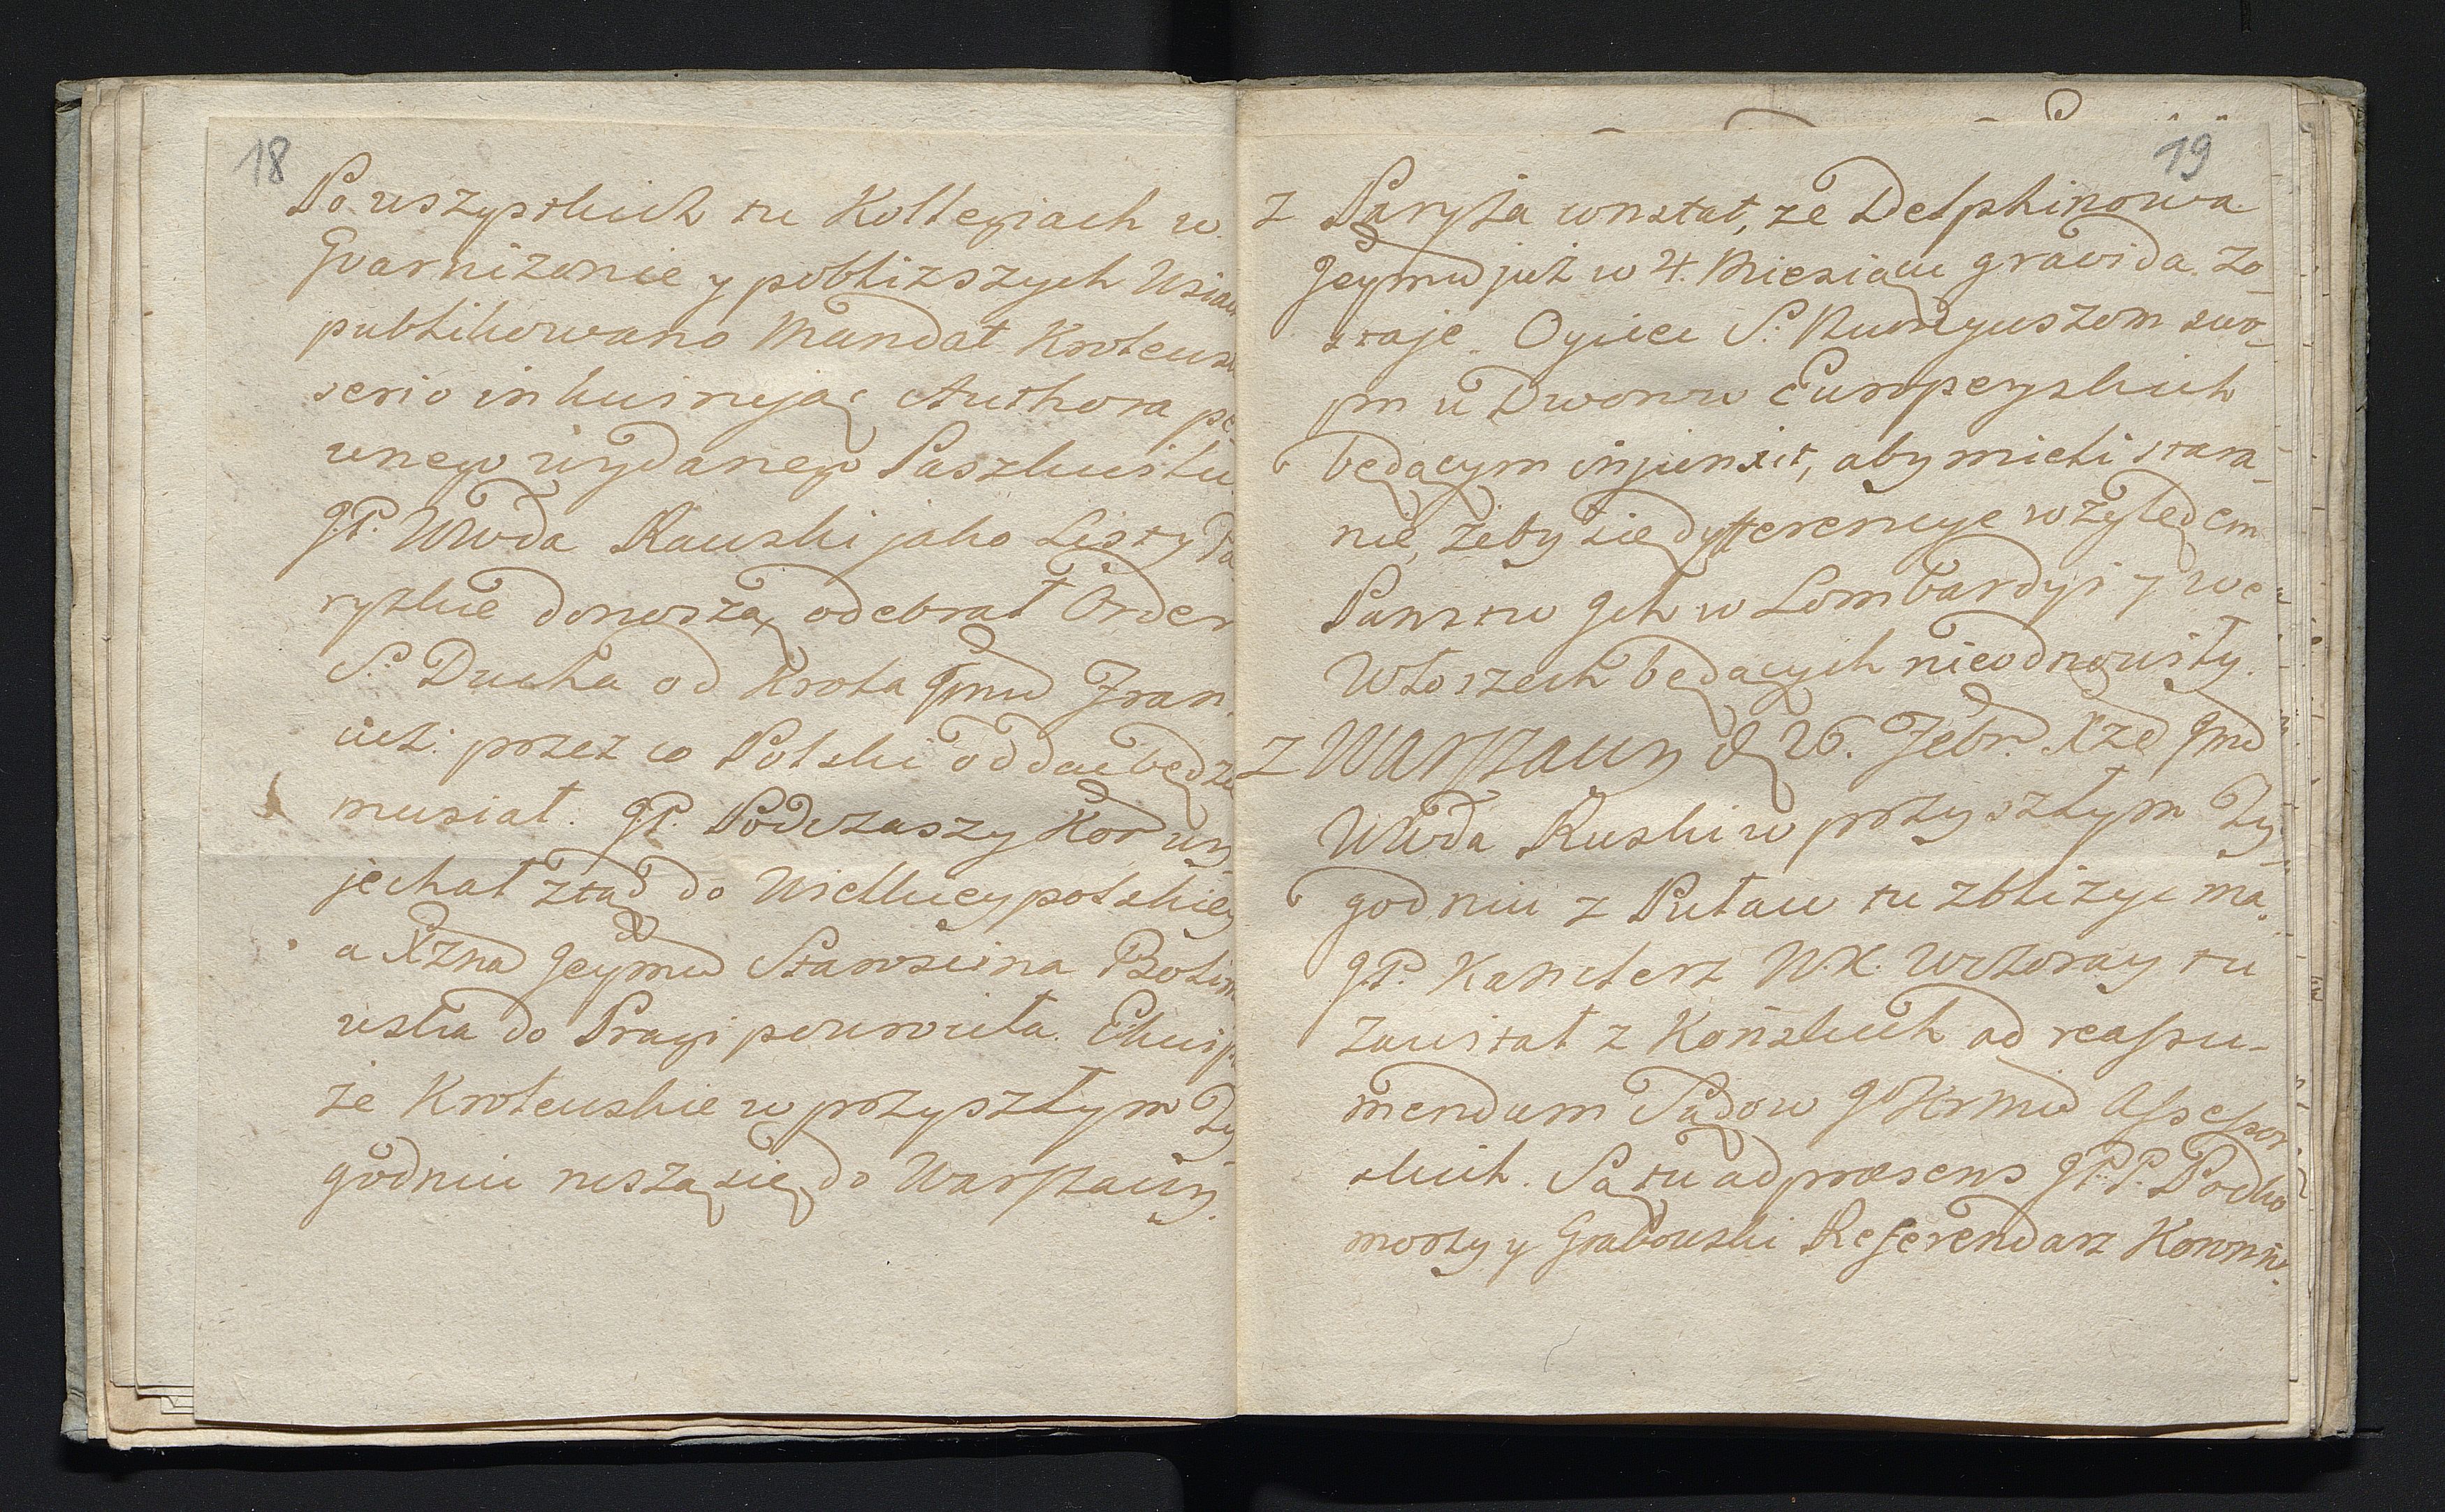 18
Po wszystkich tu Kollegiach w
Gvarnizonie y poblizszych Wsiach
publikowano Mandat Krolewsk
serio inkwirując Authora pe-
wnego wydanego Paszkwilu.
JP. Wwda Rawski jako Listy Pa
ryzkie donoszą, odebrał Order
S. Ducha od Krola Jmci Fran
cuz. przez co Polski oddac będzie
musiał. JP. Podczaszy Kor wy
jechał ztąd do Wielkieypolskiey
a Xzna Jeymc Starościna Bolim
wska do Pragi powrociła. Ekwip
że Krolewskie w przyszłym Ty
godniu ruszą się do Warszawy.
19
z Paryża constat, że Delphinowa
Jeymc już w 4. Miesiącu gravida zo-
staje. Oyciec S. Nuncyuszom swo-
im u Dworow Europeyskich
będącym injunxit, aby mieli stara-
nie, żeby się dyfferencye względem
Panstw Jch w Lombardyi y we
Włoszech będących nieodnowiły.
z Warszawy d 26. Febr. Xże Jmc
Wwda Ruski w przyszłym Ty-
godniu z Puław tu zbliżyc ma.
JP. Kanclerz W.X. wczoray tu
zawitał z Końskich ad reassu-
mendum Sądow JoKrmci Assessor
skich. Są tu ad præsens JP.P. Podko
morzy y Grabowski Referendarz Koronn.